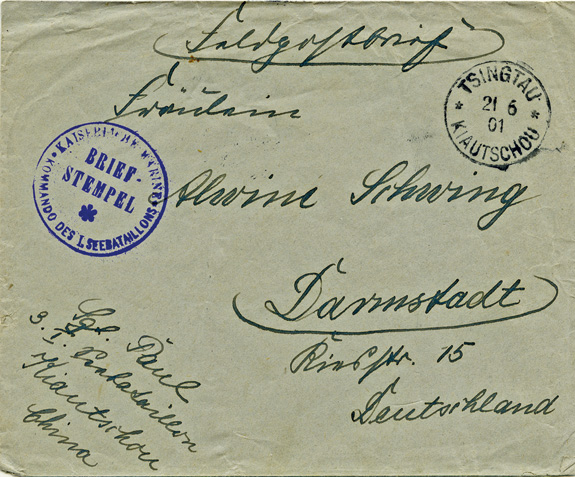 Feldpostbrief
TSINGTAU
21 6
01
KIAUTSCHOU
Fräulein
KAISERLICHE MARINE
BRIEF-
STEMPEL
KOMMANDO DES I. SEEBATAILLONS
Alwine Schwing
Darmstadt
Riesstr. 15
Deutschland
Paul
3. I. Seebataillon
Kiautschou
China